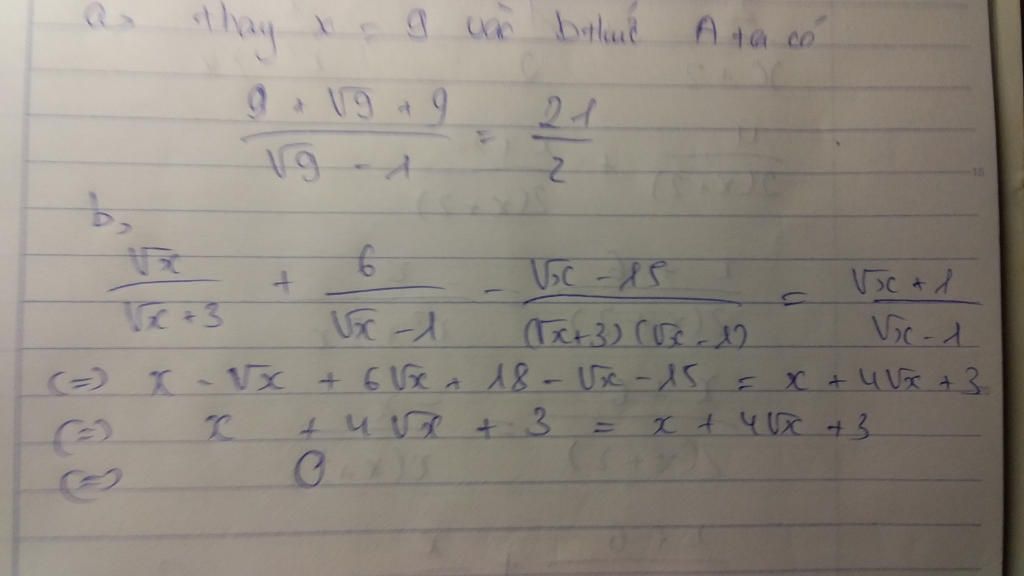 a, thay x = 9 vào bthuc A ta có
9 + √9 + 9 / √9 - 1 = 21 / 2
b,
√x / √x + 3 + 6 / √x - 1 - √x - 15 / (√x+3)(√x-1) = √x + 1 / √x - 1
(=) x - √x + 6√x + 18 - √x - 15 = x + 4√x + 3
(=) x + 4√x + 3 = x + 4√x + 3
(=) 0